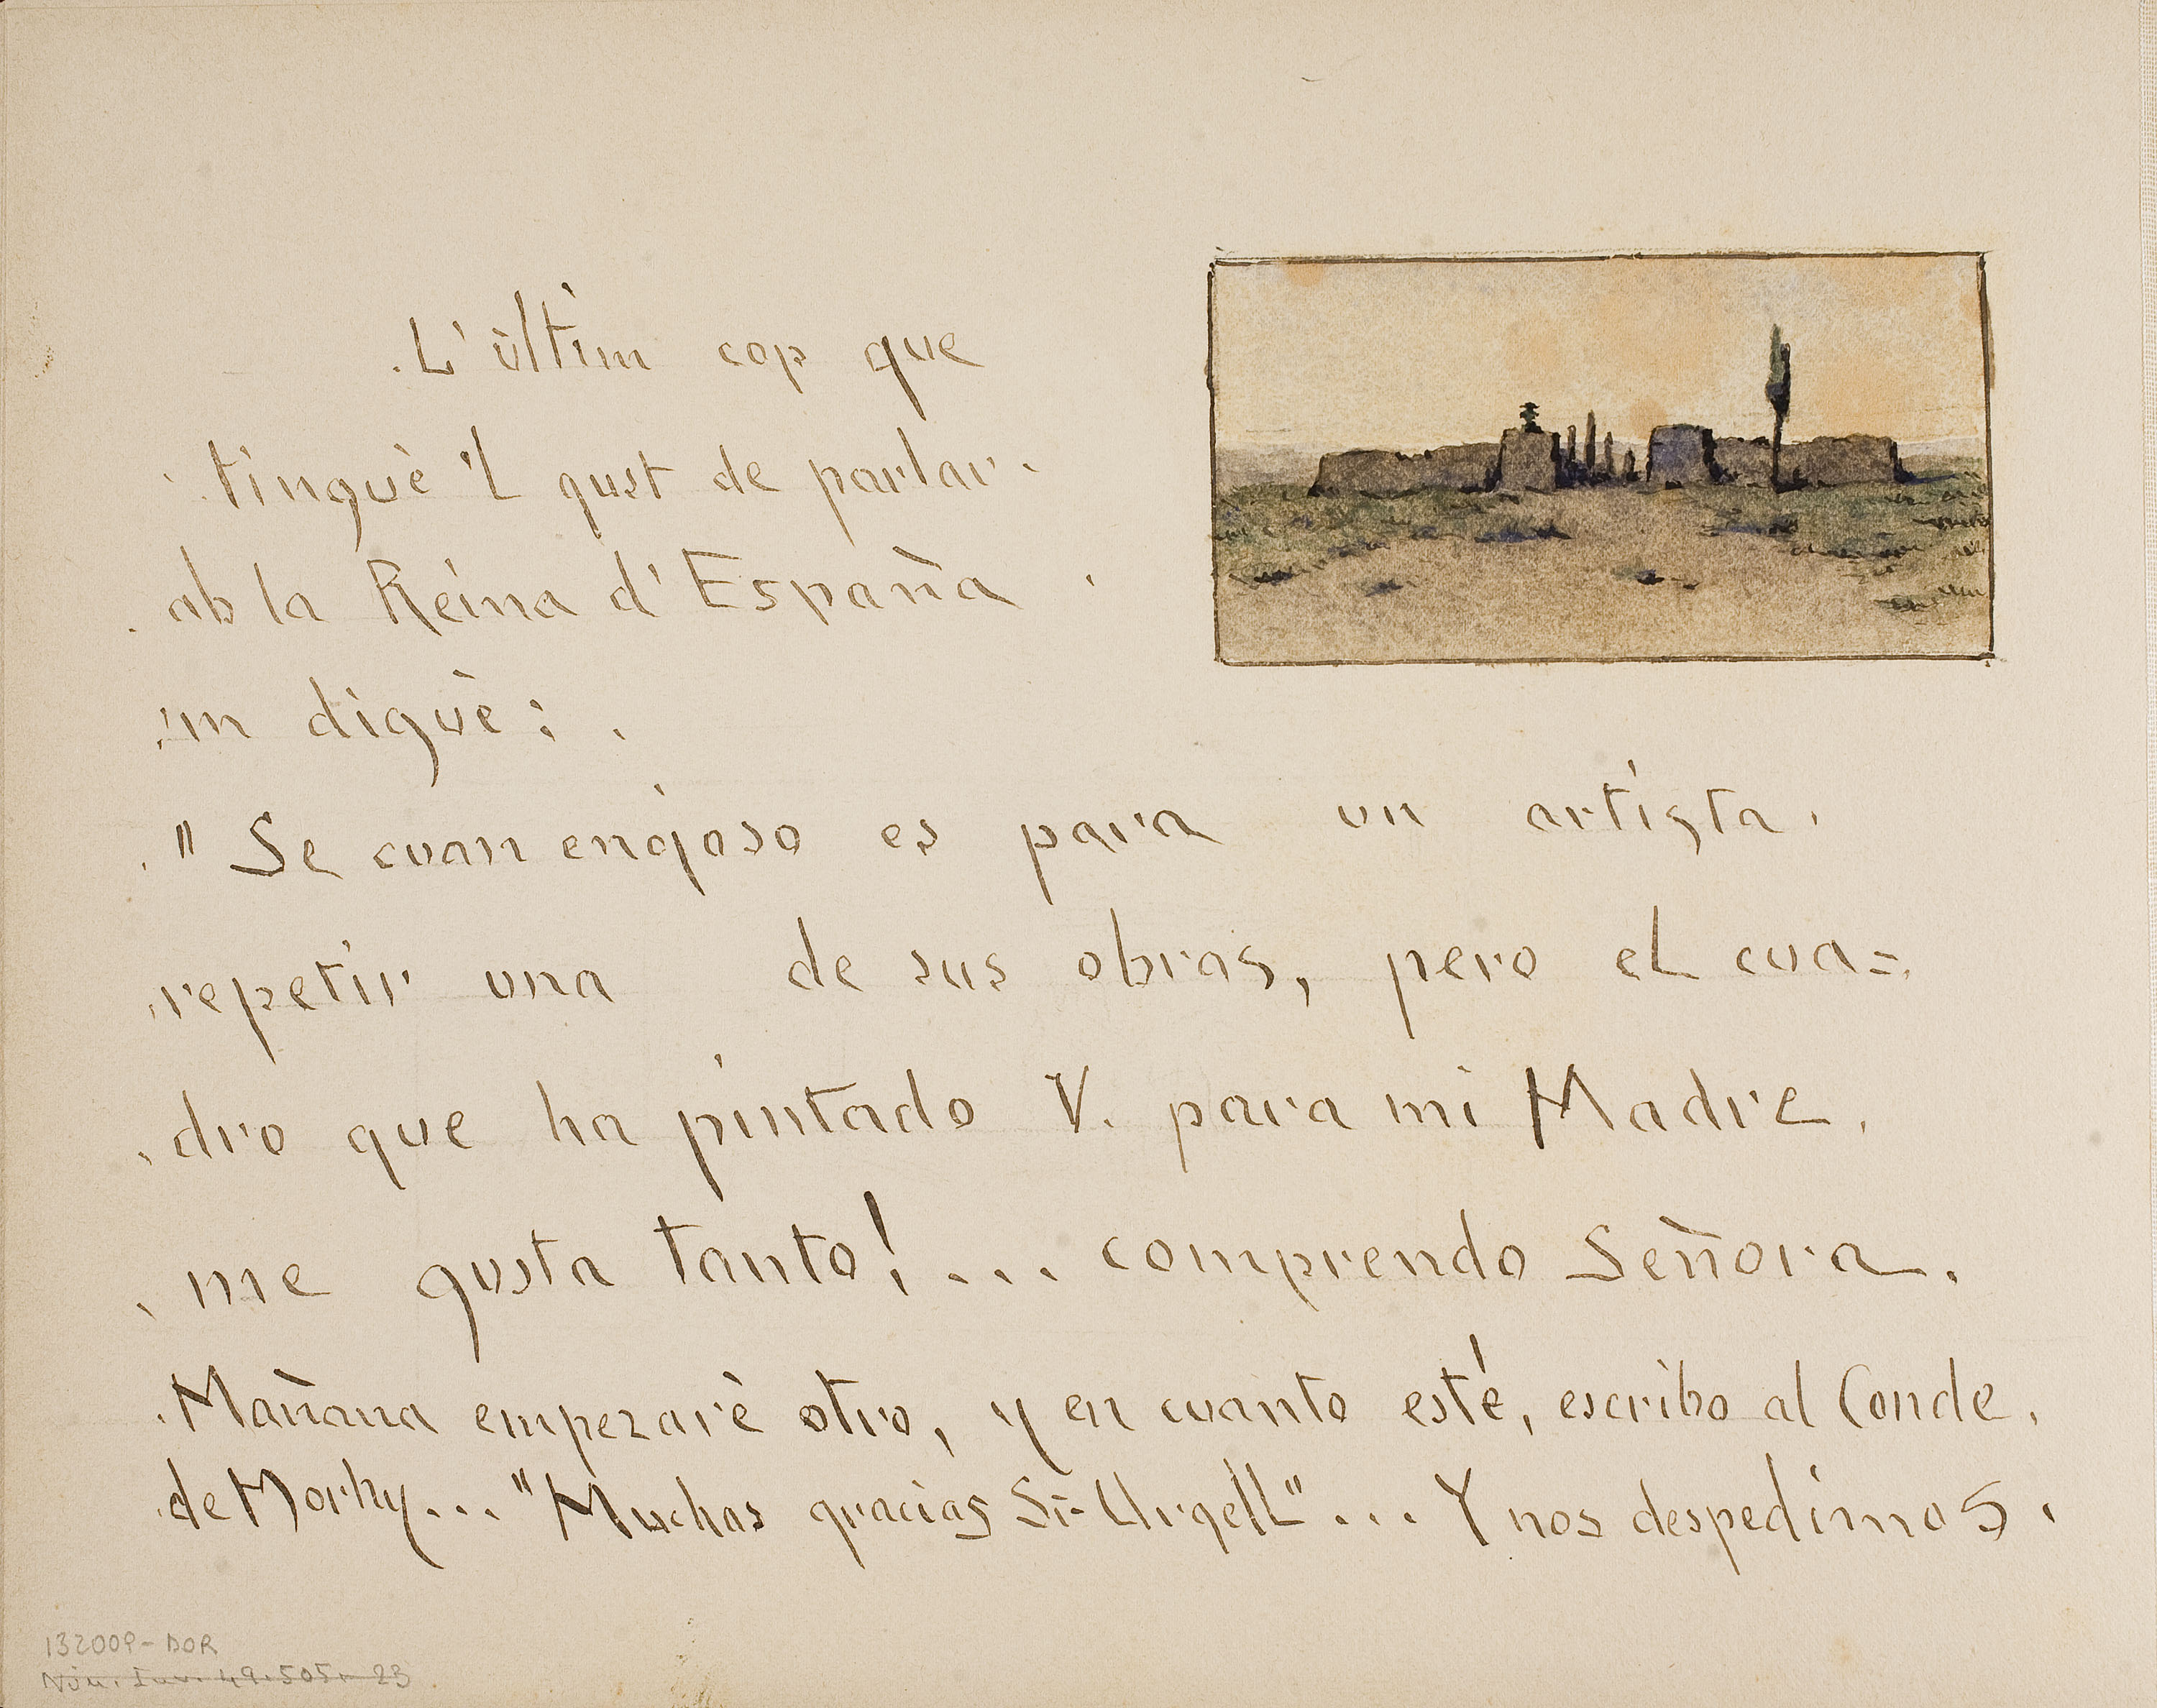 L'últim cop que
tinguè 'l gust de parlar
ab la Reina d'España
'm diguè:
"Se cuan enojoso es para un artista
repetir una de sus obras, pero el cua=
dro que ha pintado V. para mi Madre
me gusta tanto! ... comprendo Señora.
Mañana empezarè otro, y en cuanto esté, escribo al Conde
de Morhy... "Muchas gracias Sr. Urgell" ... Y nos despedimos.
132009-DOR
Núm. Inv. 49.505-23